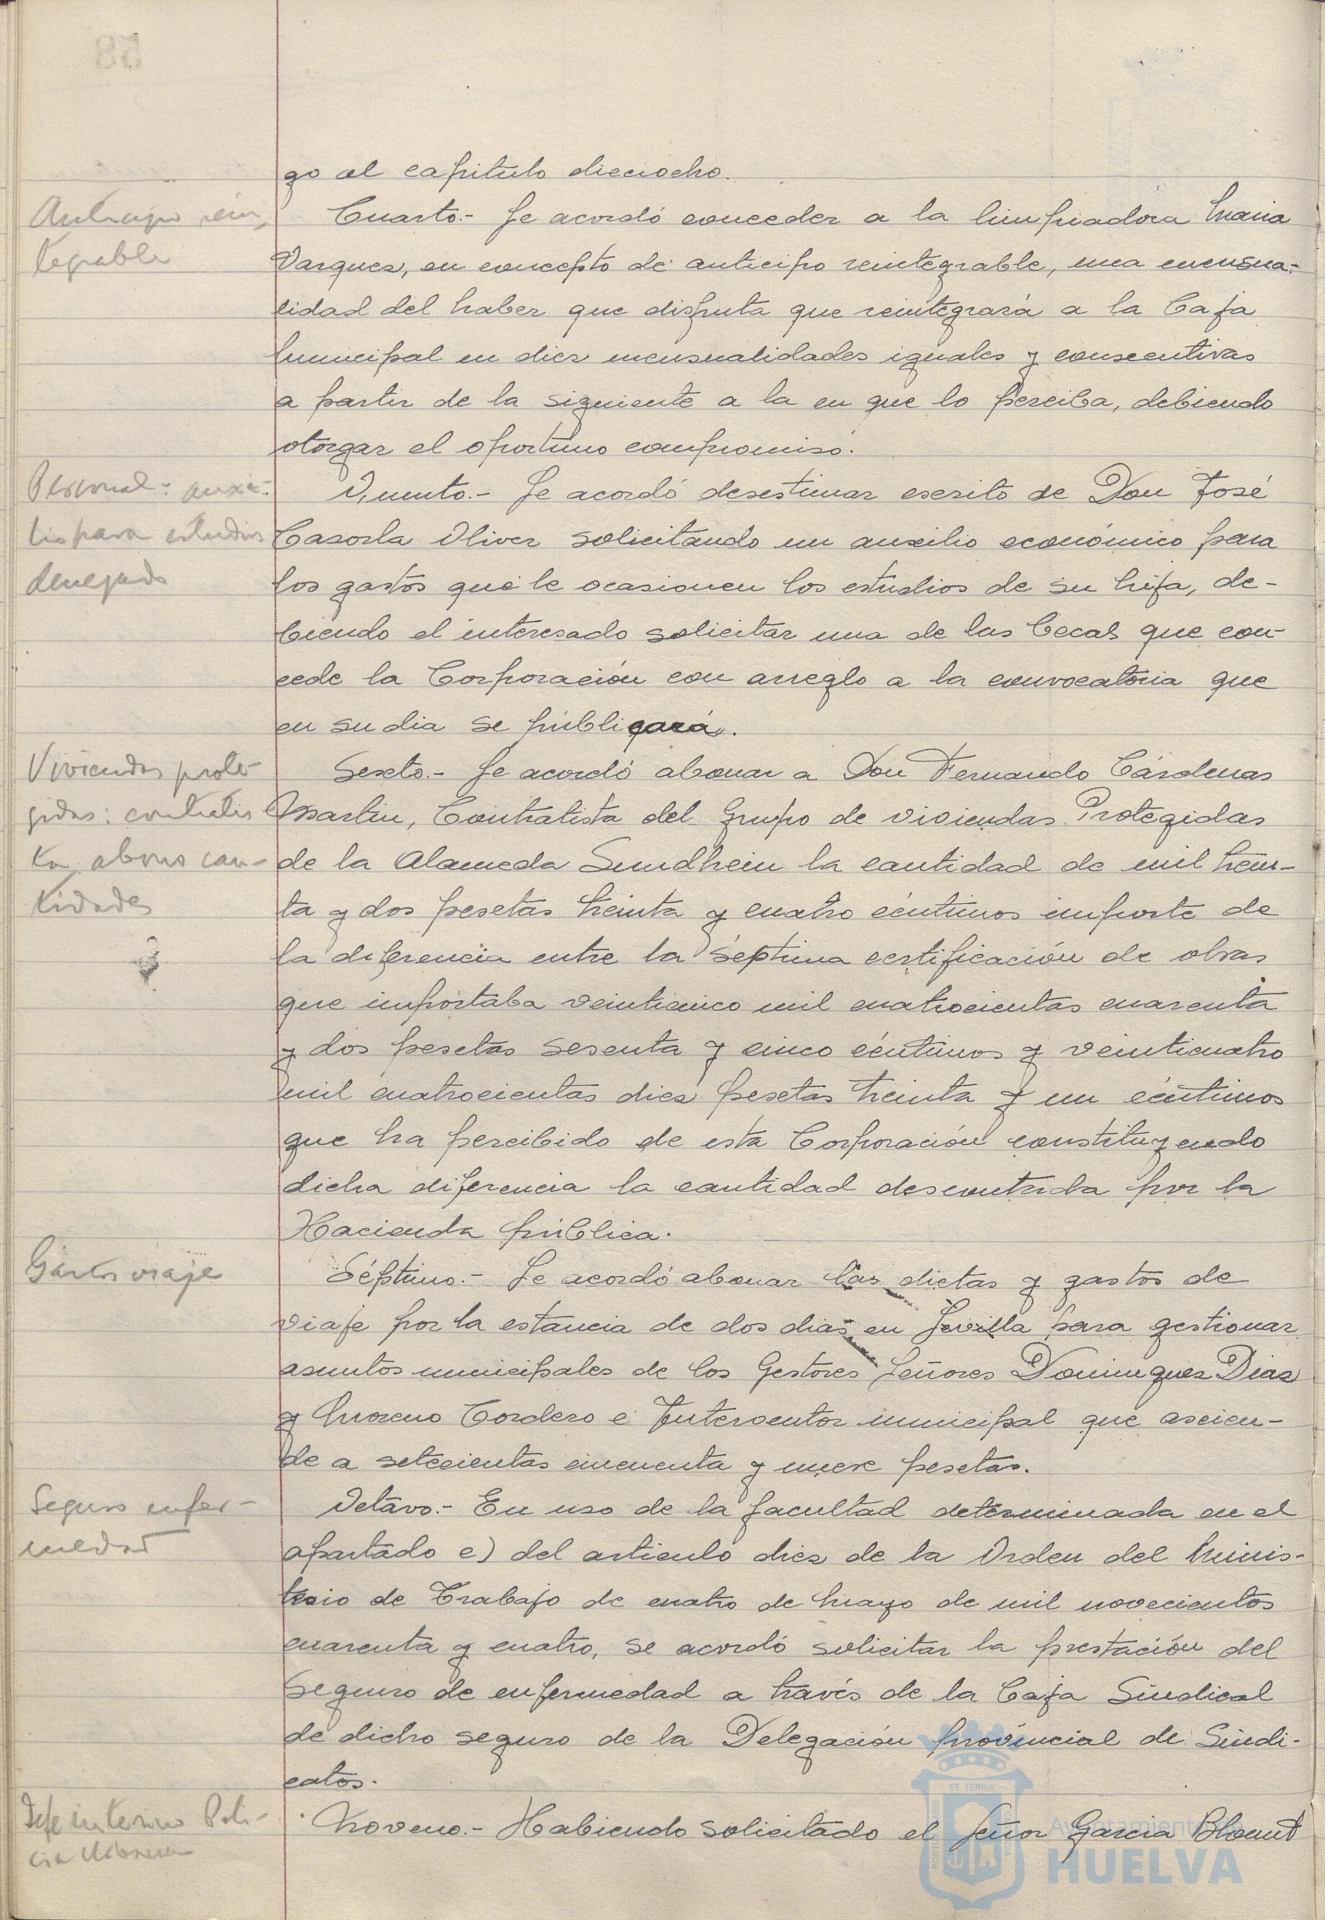 58
go al capitulo dieciocho.
Anticipo rein-
tegrable
Cuarto.- Se acordó conceder a la limpiadora Maria
Varquez, en concepto de anticipo reintegrable, una mensua-
lidad del haber que disfruta que reintegrará a la Caja
Municipal en diez mensualidades iguales y consecutivas
a partir de la siguiente a la en que lo perciba, debiendo
otorgar el oportuno compromiso.
Personal: auxi-
lio para estudios
denegado
Quinto.- Se acordó desestimar escrito de Don José
Casorla Oliver solicitando un auxilio económico para
los gastos que le ocasionen los estudios de su hija, de-
biendo el interesado solicitar una de las becas que con-
cede la Corporación con arreglo a la convocatoria que
en su dia se publicará.
Viviendas prote-
gidas: contratis
ta abono can-
tidades
Sexto.- Se acordó abonar a Don Fernando Cárdenas
Martin, Contratista del Grupo de viviendas Protegidas
de la Alameda Sundhein la cantidad de mil trein-
ta y dos pesetas treinta y cuatro céntimos importe de
la diferencia entre la séptima certificación de obras
que importaba veinticinco mil cuatrocientas cuarenta
y dos pesetas sesenta y cinco céntimos y veinticuatro
mil cuatrocientas diez pesetas treinta y un céntimos
que ha percibido de esta Corporación constituyendo
dicha diferencia la cantidad descontada por la
Hacienda pública.
Gastos viaje
Séptimo.- Se acordó abonar las dietas y gastos de
viaje por la estancia de dos dias en Sevilla para gestionar
asuntos municipales de los Gestores Señores Dominguez Diaz
y Moreno Cordero e Interventor municipal que ascien-
de a setecientas cincuenta y nueve pesetas.
Seguro enfer-
medad
Octavo.- En uso de la facultad determinada en el
apartado e) del articulo diez de la Orden del Minis-
terio de Trabajo de cuatro de Mayo de mil novecientos
cuarenta y cuatro, se acordó solicitar la prestación del
Seguro de enfermedad a través de la Caja Sindical
de dicho seguro de la Delegación provincial de Sindi-
catos.
Jefe interino Poli-
cia Urbana
Noveno.- Habiendo solicitado el Señor Garcia Blount
Ayuntamiento de
HUELVA